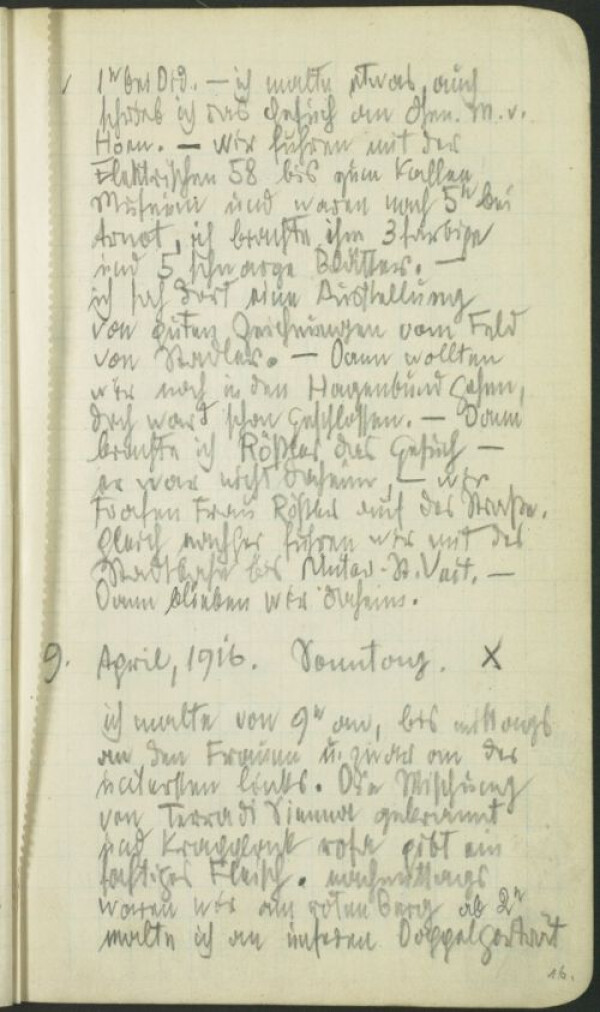 1ʰ bei Dr. — ich malte etwas, auch
schrieb ich das Gesuch an Gen. M. v.
Hoen. — Wir fuhren mit der
Elektrischen 58 bis zum
Museum und waren nach 5ʰ bei
Arnot, ich brachte ihm 3 farbige
und 5 schwarze Blätter. —
ich sah dort eine Ausstellung
von guten Zeichnungen vom Feld
von Stadler. — Dann wollten
wir noch in den Hagenbund gehen,
doch ward schon geschlossen. — Dann
brachte ich Rößler das Gesuch —
er war nicht daheim, — wir
trafen Frau Rößler auf der Straße.
Gleich nachher fuhren wir mit der
Stadtbahn bis Unter-St. Veit. —
Dann blieben wir daheim.
9. April, 1916. Sonntag. X
ich malte von 9ʰ an, bis mittags
an den Frauen u. zwar an der
untersten links. Die Mischung
von Terra di Sienna gebrannt
und Krapplack rosa gibt ein
saftiges Fleisch. nachmittags
waren wir am roten Berg ab 2ʰ
malte ich an unserem Doppelportrait
16.